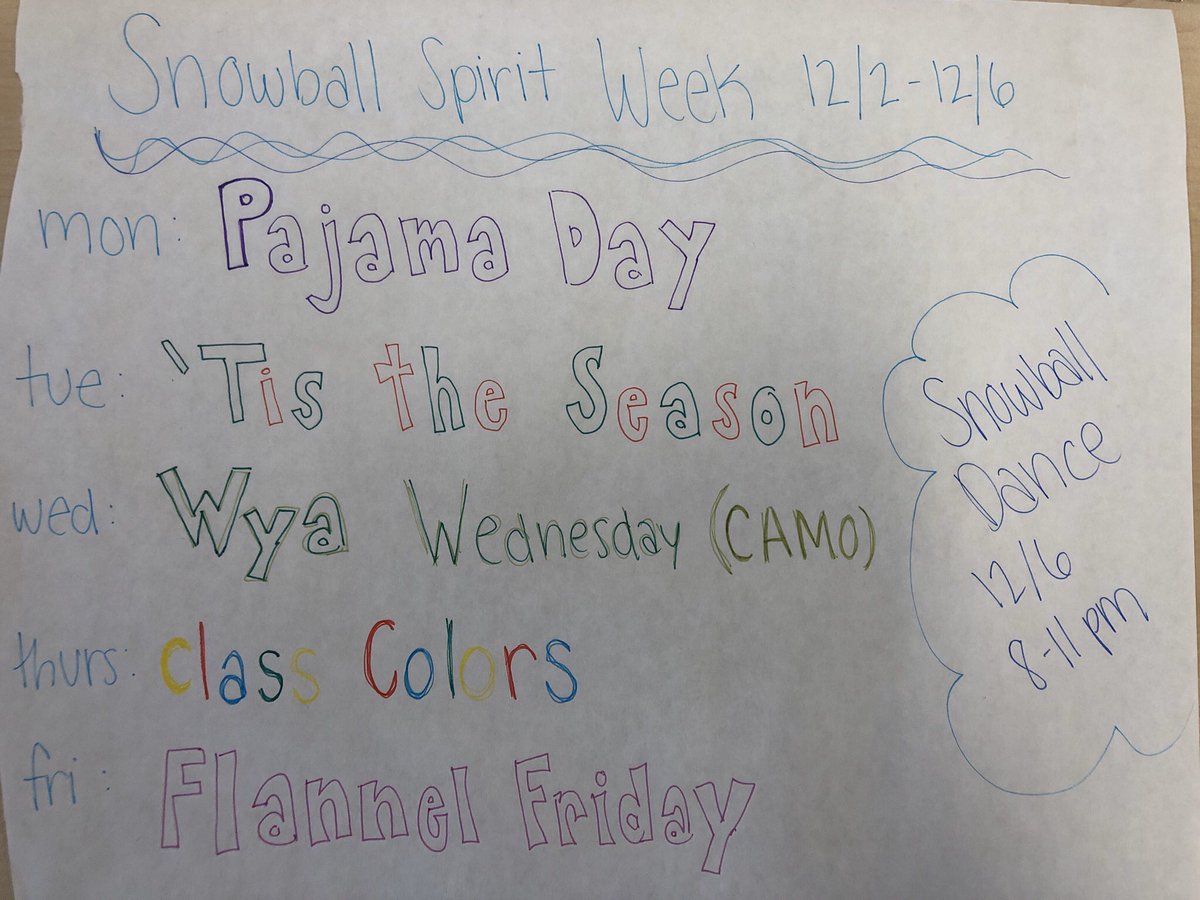 Snowball Spirit Week 12/2-12/6
mon: Pajama Day
tue: 'Tis the Season
wed: Wya Wednesday (CAMO)
thurs: Class Colors
fri: Flannel Friday
Snowball
Dance
12/6
8-11 pm